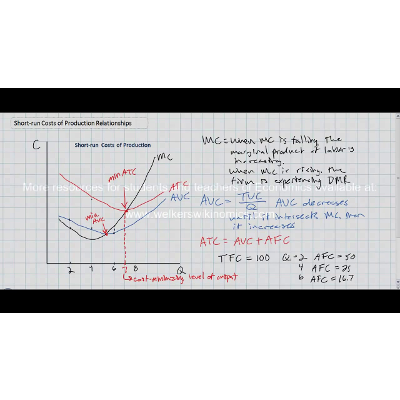 Short-run Costs of Production Relationships
Short-run Costs of Production
C
MC
min ATC
ATC
AVC
min AVC
2 4 6 7 8 Q
cost-minimizing level of output
MC = when MC is falling, the
marginal product of labor is
increasing.
when MC is rising, the
firm is experiencing DMR
AVC = TVC/Q AVC decreases
until it intersects MC, then
it increases
ATC = AVC + AFC
TFC = 100 Q = 2 AFC = 50
4 AFC = 25
6 AFC = 16.7
More resources for
teachers
Economics available at